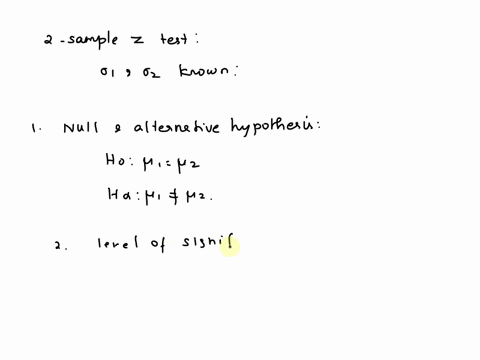 2-sample z test:
σ1, σ2 known:
1. Null & alternative hypothesis:
Ho: μ1 = μ2
Ha: μ1 ≠ μ2.
2. level of signif